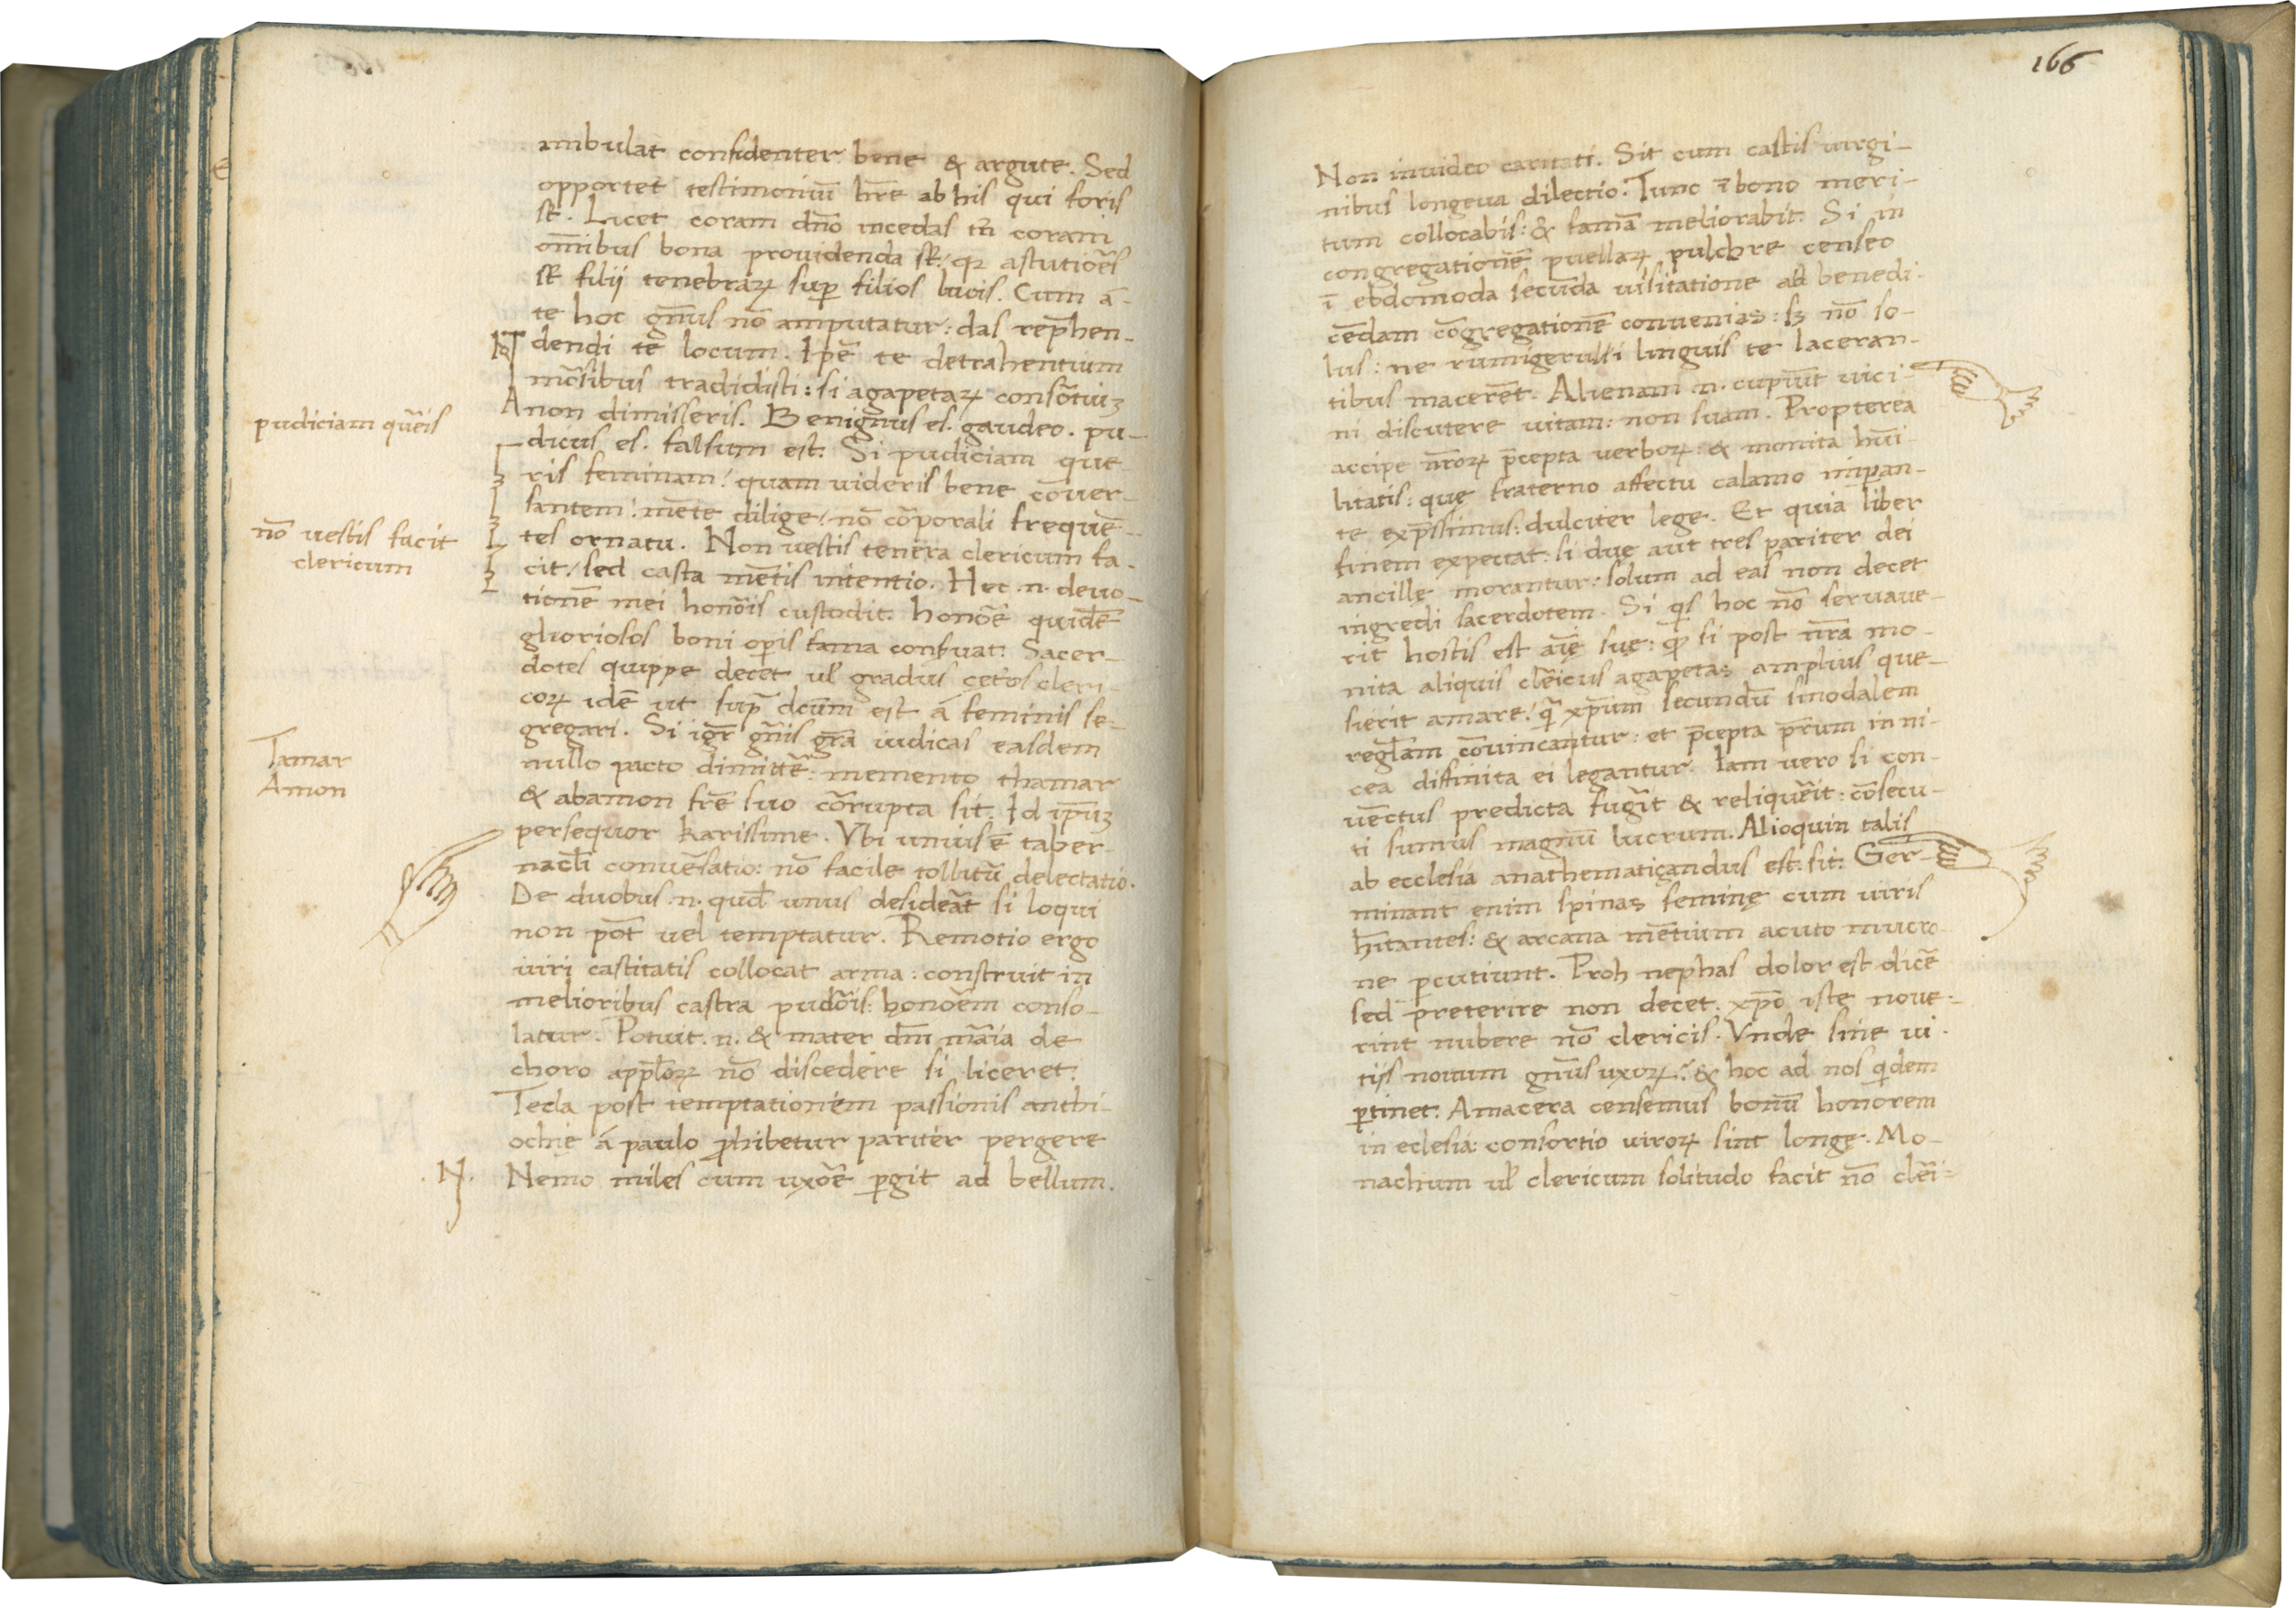 ambulat confidenter bene & argute. Sed
opportet testimoniū hr̄e ab his qui foris
st̄. Licet coram dn̄o incedas tn̄ coram
om̄ibus bona prouidenda st̄: qꝛ astutiōes
st̄ filij tenebraꝝ suꝑ filios lucis. Cum ā-
te hoc gn̄us nō amputatur: das rep̄hen-
dendi te locum. Ip̄e te detrahentium
mōrsibus tradidisti: si agapetaꝝ consōtiuꝫ
non dimisseris. Benignus es. gaudeo. pu-
dicus es. falsum est. Si pudiciam que
ris feminam: quam uideris bene cōuer-
santem: mēte dilige: nō cōrporali frequē-
tes ornatu. Non uestis tenera clericum fa-
cit: sed casta mētis intentio. Hec .n. deuo-
tionē mei honōis custodit. honōē quidē
gluoriosos boni oꝑis fama conẜuat. Sacer-
dotes quippe decet ul̄ gradus cet̄os cleri
coꝝ idē ut sup̄ dcūm est á feminis se-
gregari. Si igr̄ gn̄is gr̄a iudicas easdem
nullo pacto dimittē: memento thamar
& abamon fr̄e suo cōrupta sit. Id ip̄uꝫ
persequor karissime. Vbi unius ē taber-
nacl̄i conuēsatio: nō facile tollitū delectatio.
De duobus .n. qud̄ unus desideāt si loqui
non pōt uel temptatur. Remotio ergo
uiri castitatis collocat arma: construit in
melioribus castra pudōis: honōēm conso-
latur. Potuit .n. & mater dn̄i māia de
choro app̄l̄oꝝ nō discedere si liceret.
Tecla post temptationem passionis anthi-
ochie á paulo ꝓhibetur pariter pergere
Nemo miles cum uxōē ꝑgit ad bellum.
pudiciam qūeis
nō uestis facit
clericum
Tamar
Amon
N.
166
Non inuideo caritati. Sit cum castis uirgi-
nibus longeua dilectio. Tunc ī bono meri-
tum collocabis: & famā meliorabit. Si in
congregationē puellaꝝ pulchre censeo
ī ebdomoda secūda uisitatione ad benedi-
cēdam cōgregationē conuenias: sꝫ nō so-
lus: ne rumigerulisi linguis te laceran-
tibus macerēt. Alienam .n. cupiūt uici-
ni discutere uitam: non suam. Propterea
accipe nr̄oꝝ p̄cepta uerboꝝ: & monita hūi-
litatis: quę fraterno affectu calamo inpan-
te exp̄ssimus: dulciter lege. Et quia liber
finem expectat: si duę aut tres pariter dei
ancillę morantur: solum ad eas non decet
ingredi sacerdotem. Si qͥs hoc nō seruaue-
rit hostis est aīę suę: qͩ si post nr̄a mo-
nita aliquis clēicus agapetas amplius que-
sierit amare: qͣ xp̄um secundū sinodalem
regl̄am cōuincantur: et p̄cepta pr̄um in ni-
cea diffinita ei legantur. Iam uero si con-
uēctus predicta fugīt & reliquēit: cōsecu-
ti sumus magnū lucrum. Alioquin talis
ab ecclesia anathematiçandus est: sit: Ger-
minant enim spinas feminę cum uiris
hītantes: & arcana mētium acuto mucro-
ne ꝑcutiunt. Proh nephas dolor est dicē
sed preterire non decet: xp̄o iste noue-
rint nubere nō clericis. Vnde sine ui-
tijs nouum gn̄us uxoꝝ: & hoc ad nos qͥdem
ꝑtinet: Amacera censemus bonū honorem
in eclesia: consortio uiroꝝ sint longę. Mo-
nachum ul̄ clericum solitudo facit nō clēi-